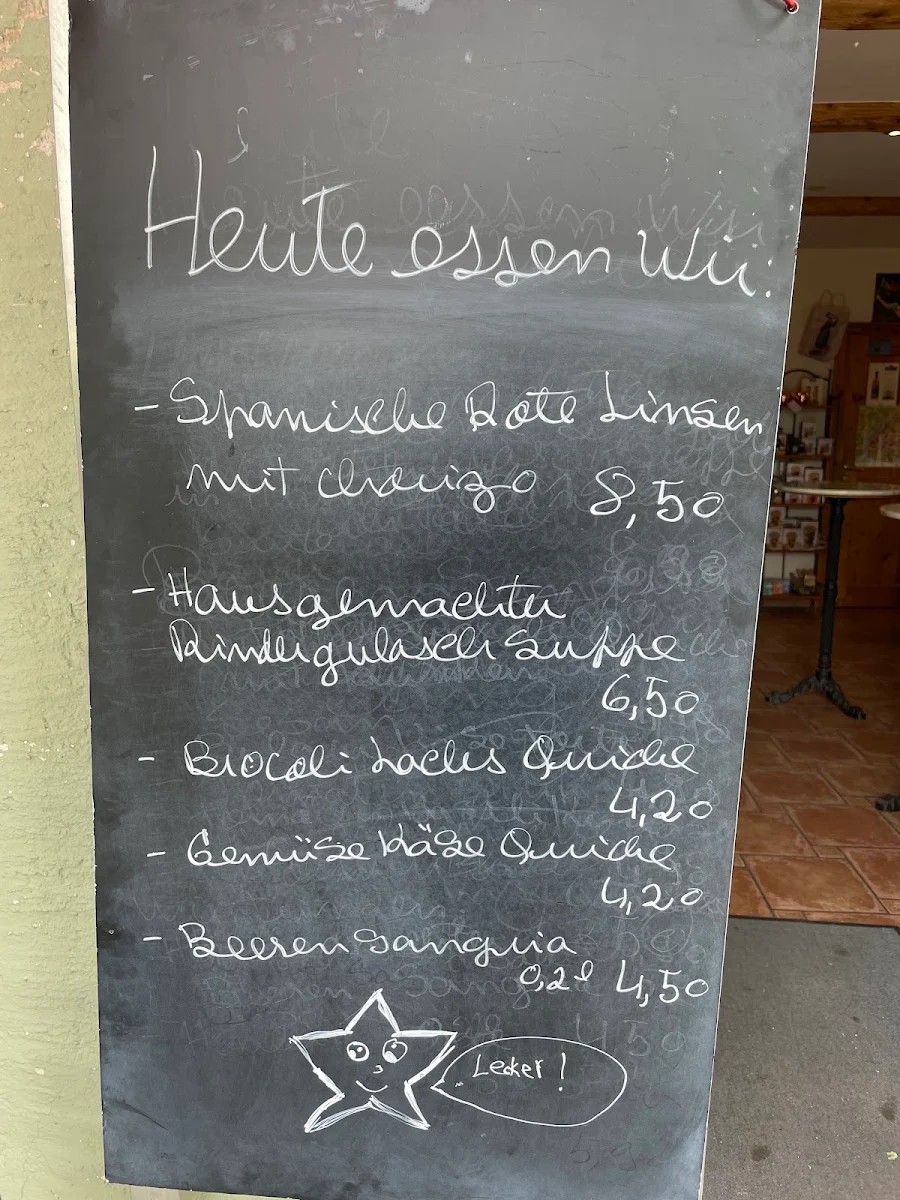 Heute essen wir:
- Spanische Rote Linsen
mit chorizo 8,50
- Hausgemachter
Rindergulasch Suppe
6,50
- Brocoli Lachs Quiche
4,20
- Gemüse Käse Quiche
4,20
- Beerensangria
0,2l 4,50
Lecker!